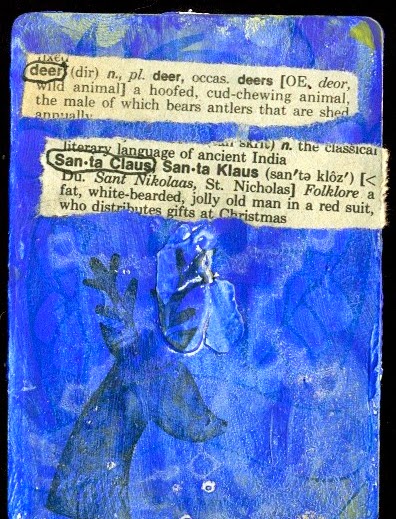 deer (dir) n., pl. deer, occas. deers [OE, deor,
wild animal] a hoofed, cud-chewing animal,
the male of which bears antlers that are shed
annually
n. the classical
literary language of ancient India
San·ta Claus, San·ta Klaus (san'tə klôz') [<
Du. Sant Nikolaas, St. Nicholas] Folklore a
fat, white-bearded, jolly old man in a red suit,
who distributes gifts at Christmas